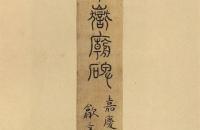 嶽廟碑
嘉慶